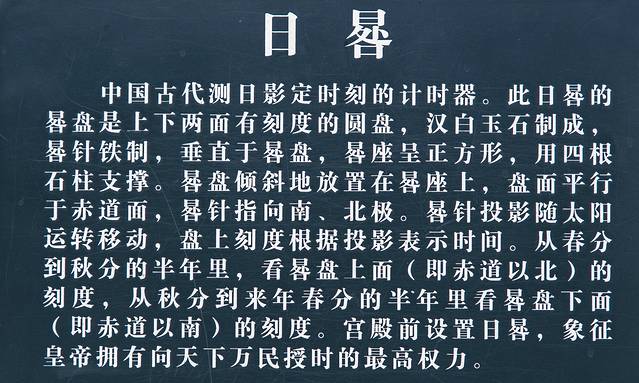 日晷
中国古代测日影定时刻的计时器。此日晷的
晷盘是上下两面有刻度的圆盘，汉白玉石制成，
晷针铁制，垂直于晷盘，晷座呈正方形，用四根
石柱支撑。晷盘倾斜地放置在晷座上，盘面平行
于赤道面，晷针指向南、北极。晷针投影随太阳
运转移动，盘上刻度根据投影表示时间。从春分
到秋分的半年里，看晷盘上面（即赤道以北）的
刻度，从秋分到来年春分的半年里看晷盘下面
（即赤道以南）的刻度。宫殿前设置日晷，象征
皇帝拥有向天下万民授时的最高权力。